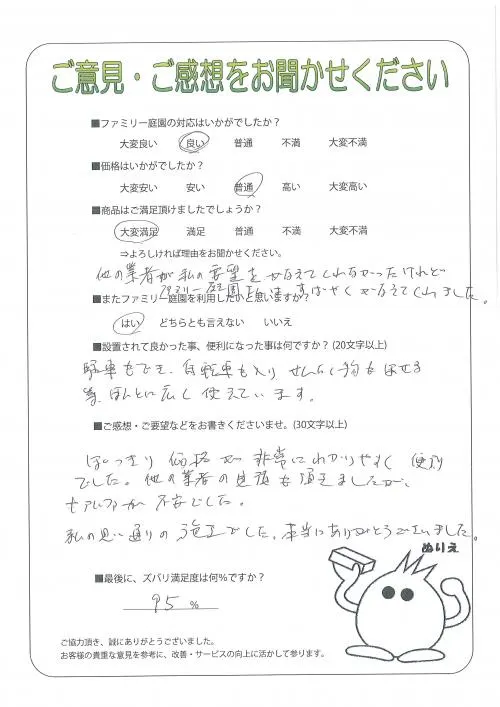 ご意見・ご感想をお聞かせください
■ファミリー庭園の対応はいかがでしたか？
大変良い 良い 普通 不満 大変不満
■価格はいかがでしたか？
大変安い 安い 普通 高い 大変高い
■商品はご満足頂けましたでしょうか？
大変満足 満足 普通 不満 大変不満
⇒よろしければ理由をお聞かせください。
他の業者が私の要望をかなえてくれなかったけれど
ファミリー庭園さんは、すばやくかなえてくれました。
■またファミリー庭園を利用したいと思いますか？
はい どちらとも言えない いいえ
■設置されて良かった事、便利になった事は何ですか？(20文字以上)
駐車もでき、自転車も入り せんたく物も干せる
等、ほんとに広く使えています。
■ご感想・ご要望などをお書きくださいませ。(30文字以上)
はっきり価格が非常にわかりやすく 便利
でした。他の業者の見積も頂きましたが、
不安でした。
私の思い通りの施工でした。本当にありがとうございました。
ぬりえ
■最後に、ズバリ満足度は何%ですか？
95 %
ご協力頂き、誠にありがとうございました。
お客様の貴重な意見を参考に、改善・サービスの向上に活かして参ります。